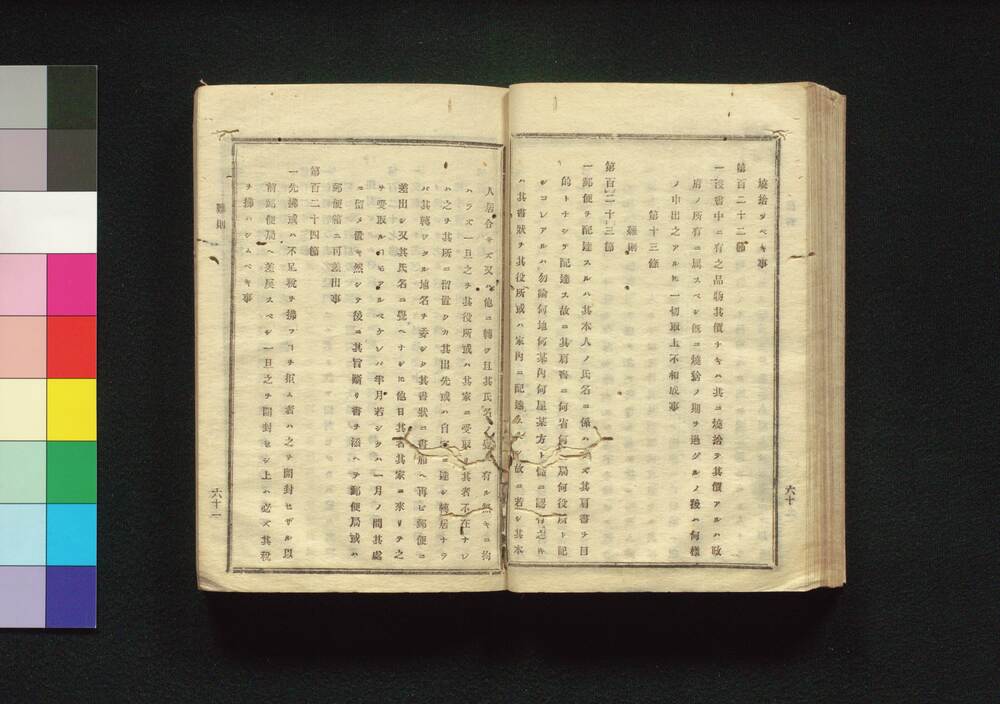 燒捨ツベキ事
第百二十二節
一渡書中ニ有之品物其價ナキハ其ニ燒捨ヲ其價アルハ政
府ノ所有ニ属スベシ既ニ燒捨ノ期ヲ過グルノ後ハ何樣
ノ申出之アルモ一切取上不相成事
第十三條
雜則
第百二十三節
一郵便ヲ配達スルハ其本人ノ氏名ニ係ハ ズ其肩書ヲ目
的トナシテ配達ス故ニ其肩書ニ何省何 局何役所ト記
シコレアルハ勿論何地何某內何屋某方ト 認有之 
ハ其書狀ヲ其役所或ハ家內ニ配達 故ニ若シ其本
六十
人居合セズ又ハ他ニ轉ヲ且其氏名ノ 有ル無キニ拘
ハラズ一旦之ヲ其役所或ハ其家ニ受取 其者不在ナレ
ハ之ヲ其所ニ留置クカ其出先或ハ自 ニ達シ轉居ナラ
バ其轉ジタル地名ヲ委シク其書狀ニ書加ヘ再ビ郵便ニ
差出シ又其氏名ニ覺ヘナシ 他日其者其家ニ來リテ之
ヲ受取ル モアルベケレバ半月若シクハ一月ノ間其處
ニ留メ置キ然シテ後ニ其旨斷リ書ヲ添ヘテ郵便局或ハ
郵便箱ニ可差出事
第百二十四節
一先拂或ハ不足稅ヲ拂フコヲ拒ム者ハ之ヲ開封セザル以
前郵便局ヘ差戾スベシ一旦之ヲ開封セシ上ハ必ズ其稅
ヲ拂ハシムベキ事
雜則
六十一